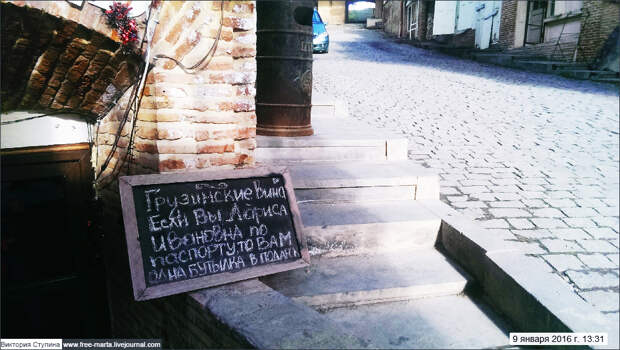 Грузинские Вина
Если Вы Лариса
Ивановна по
паспорту, то ВАМ
одна бутылка в подарок
Виктория Ступина www.free-marta.livejournal.com
9 января 2016 г. 13:31